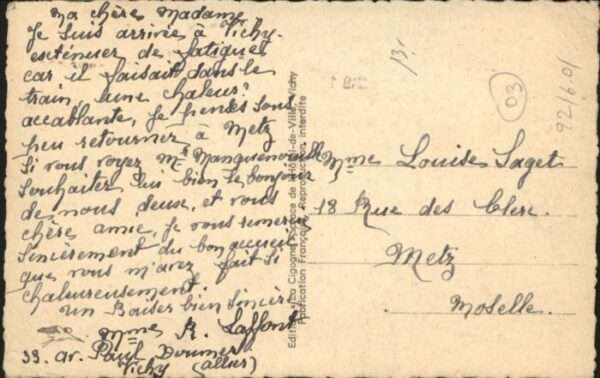 Ma chère Madame
Je suis arrivée à Vichy.
exténuer de fatigues
car il faisait dans le
train, une chaleur
accablante, je pense sous
peu retourner à Metz
Si vous voyez Mr
Souhaiter lui bien le bonjour
de nous deux, et vous
chère amie, je vous remercie
sincèrement du bon accueil
que vous m'avez fait si
chaleureusement.
un Baiser bien sincère
Mme R. Laffont
33. av. Paul Doumer
Vichy (allier)
Editions La Cigogne, place de l'Hôtel-de-Ville, Vichy
Fabrication Française, Reproduction interdite
03
92/601
Mme Louise Saget
18 Rue des Clerc.
Metz
Moselle.